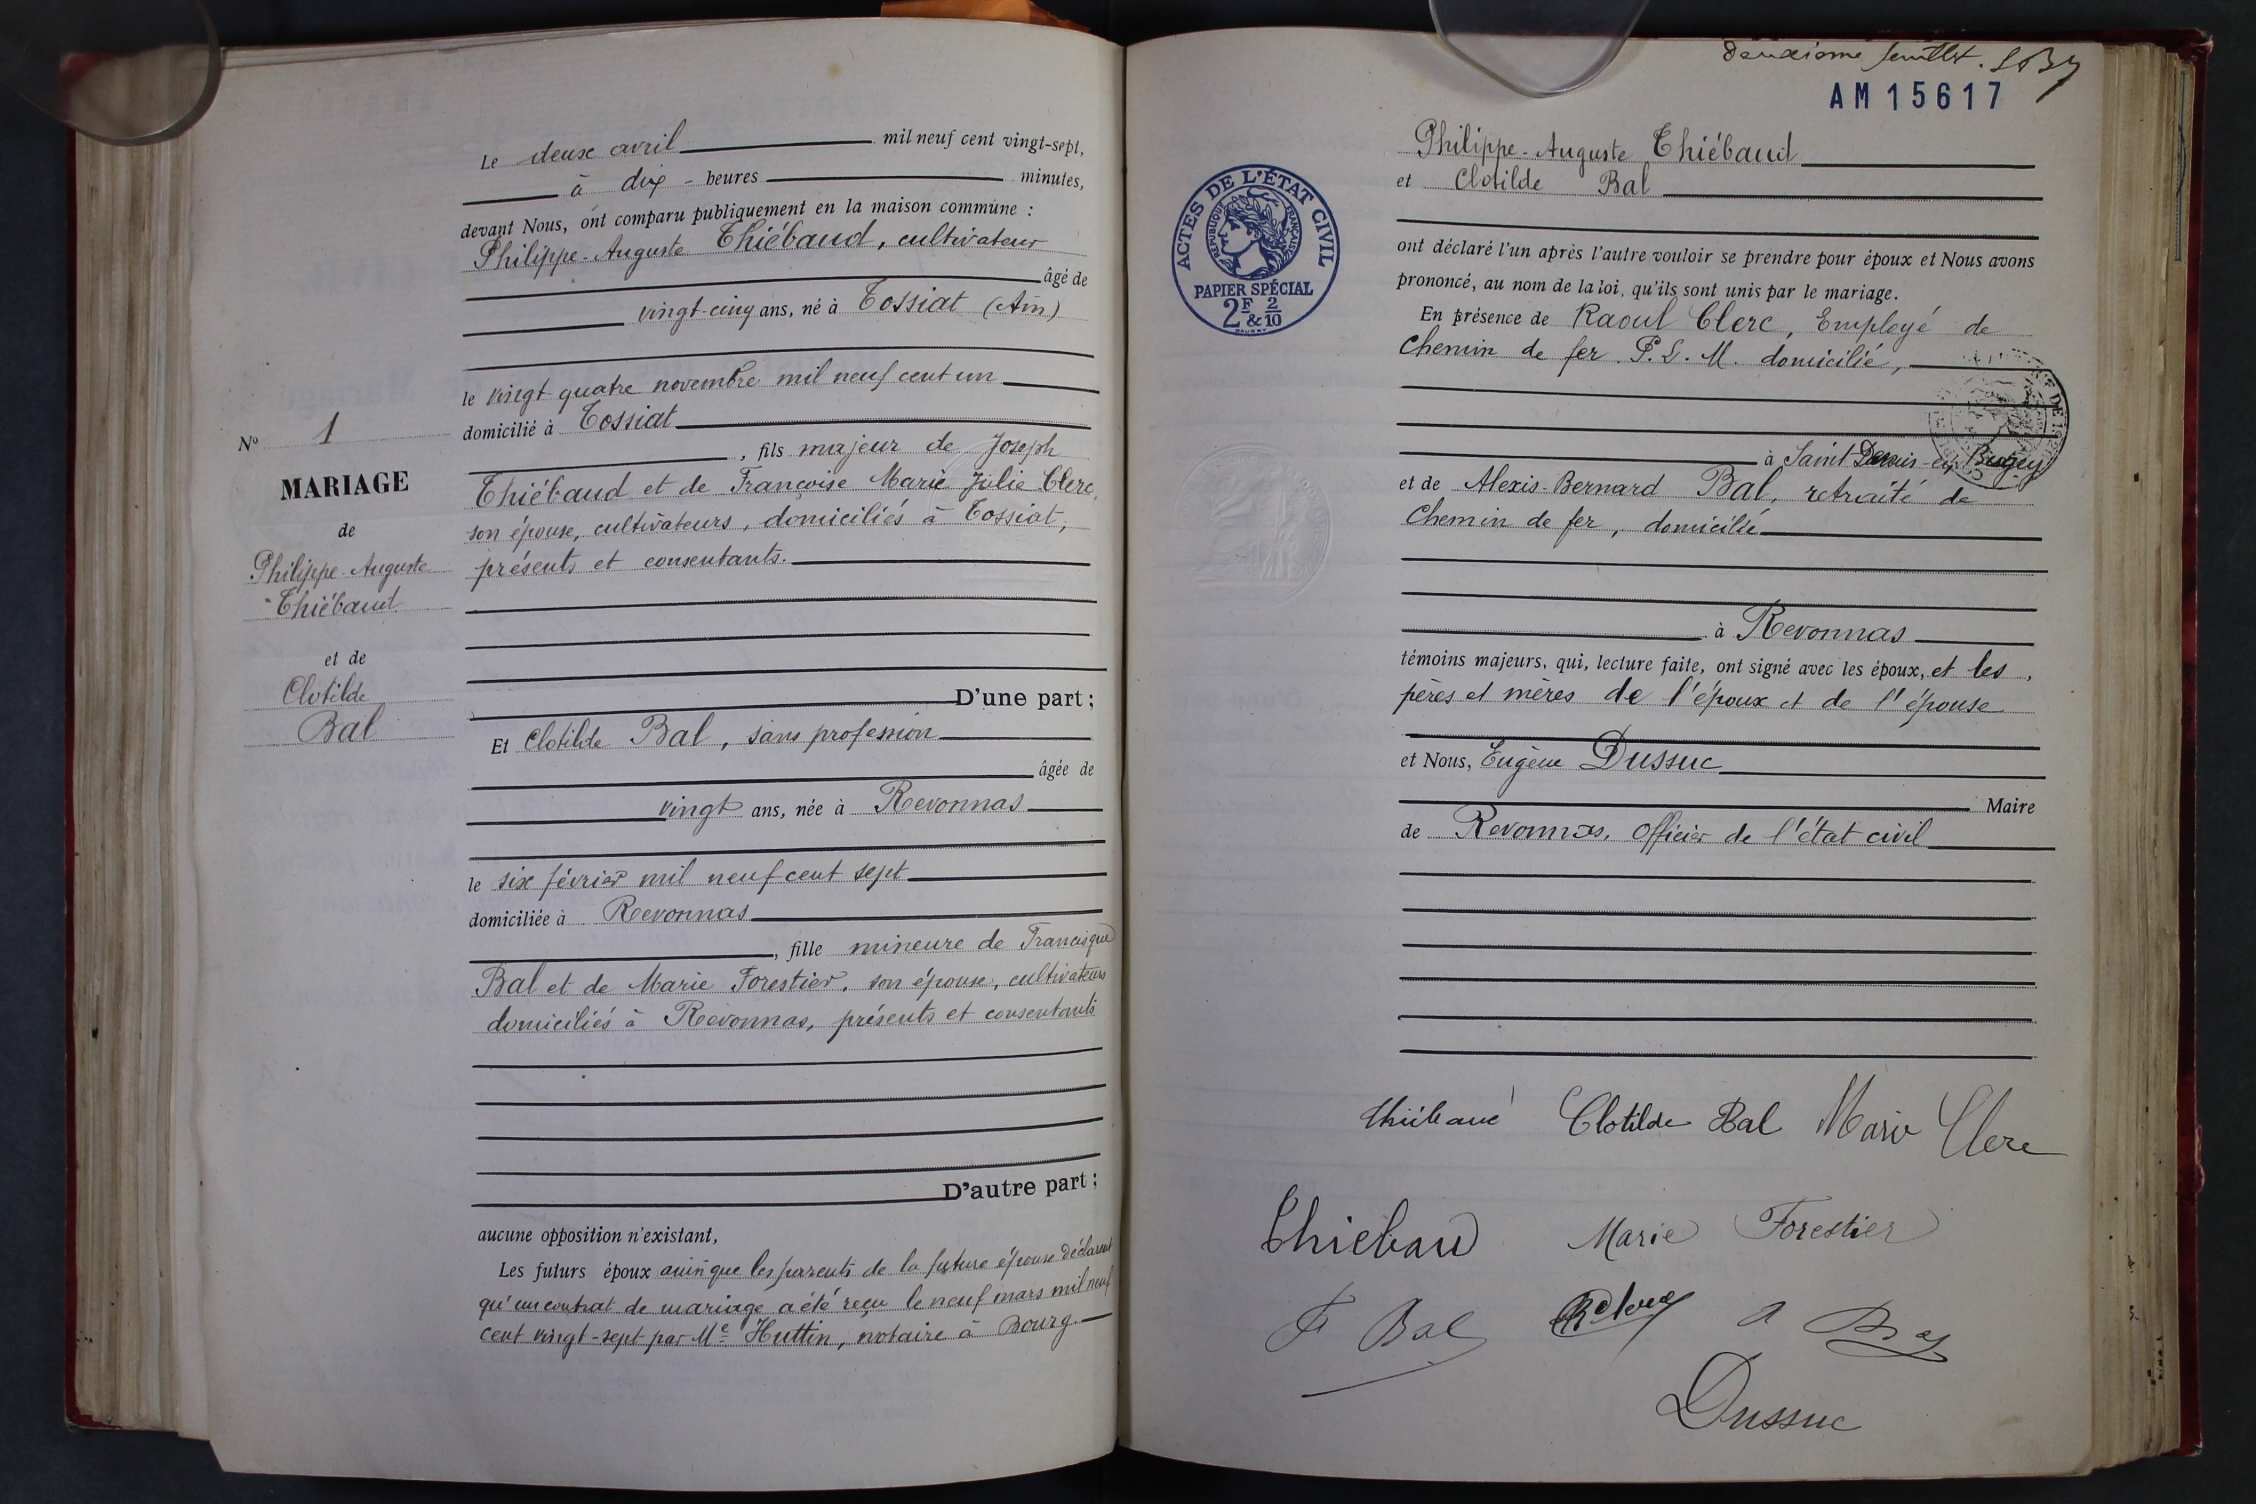 Le deux avril mil neuf cent vingt-sept,
à dix - heures minutes,
devant Nous, ont comparu publiquement en la maison commune :
Philippe-Auguste Thiébaud, cultivateur
âgé de
vingt-cinq ans, né à Tossiat (Ain)
le vingt quatre novembre mil neuf cent un
domicilié à Tossiat
, fils majeur de Joseph
Thiébaud et de Françoise Marie Julie Clerc,
son épouse, cultivateurs, domiciliés à Tossiat,
présents et consentants.
D'une part ;
Et Clotilde Bal, sans profession
âgée de
vingt ans, née à Revonnas
le six février mil neuf cent sept
domiciliée à Revonnas
, fille mineure de Francisque
Bal et de Marie Forestier, son épouse, cultivateurs
domiciliés à Revonnas, présents et consentants
D'autre part ;
aucune opposition n'existant,
Les futurs époux ainsi que les parents de la future épouse déclarent
qu'un contrat de mariage a été reçu le neuf mars mil neuf
cent vingt-sept par Me Huttin, notaire à Bourg.
No 1
MARIAGE
de
Philippe-Auguste
Thiébaud
et de
Clotilde
Bal
deuxième feuillet.
AM 15617
Philippe-Auguste Thiébaud
et Clotilde Bal
ont déclaré l'un après l'autre vouloir se prendre pour époux et Nous avons
prononcé, au nom de la loi, qu'ils sont unis par le mariage.
En présence de Raoul Clerc, Employé de
Chemin de fer P.L.M. domicilié,
à Saint Denis-en-Bugey
et de Alexis-Bernard Bal, retraité de
Chemin de fer, domicilié
à Revonnas
témoins majeurs, qui, lecture faite, ont signé avec les époux, et les
pères et mères de l'époux et de l'épouse
et Nous, Eugène Dussuc
Maire
de Revonnas, Officier de l'état civil
ACTES DE L'ÉTAT CIVIL
RÉPUBLIQUE FRANÇAISE
PAPIER SPÉCIAL
2F & 2/10
Thiébaud Clotilde Bal Marie Clerc
Thiebaud Marie Forestier
F Bal R Clerc A Bal
Dussuc